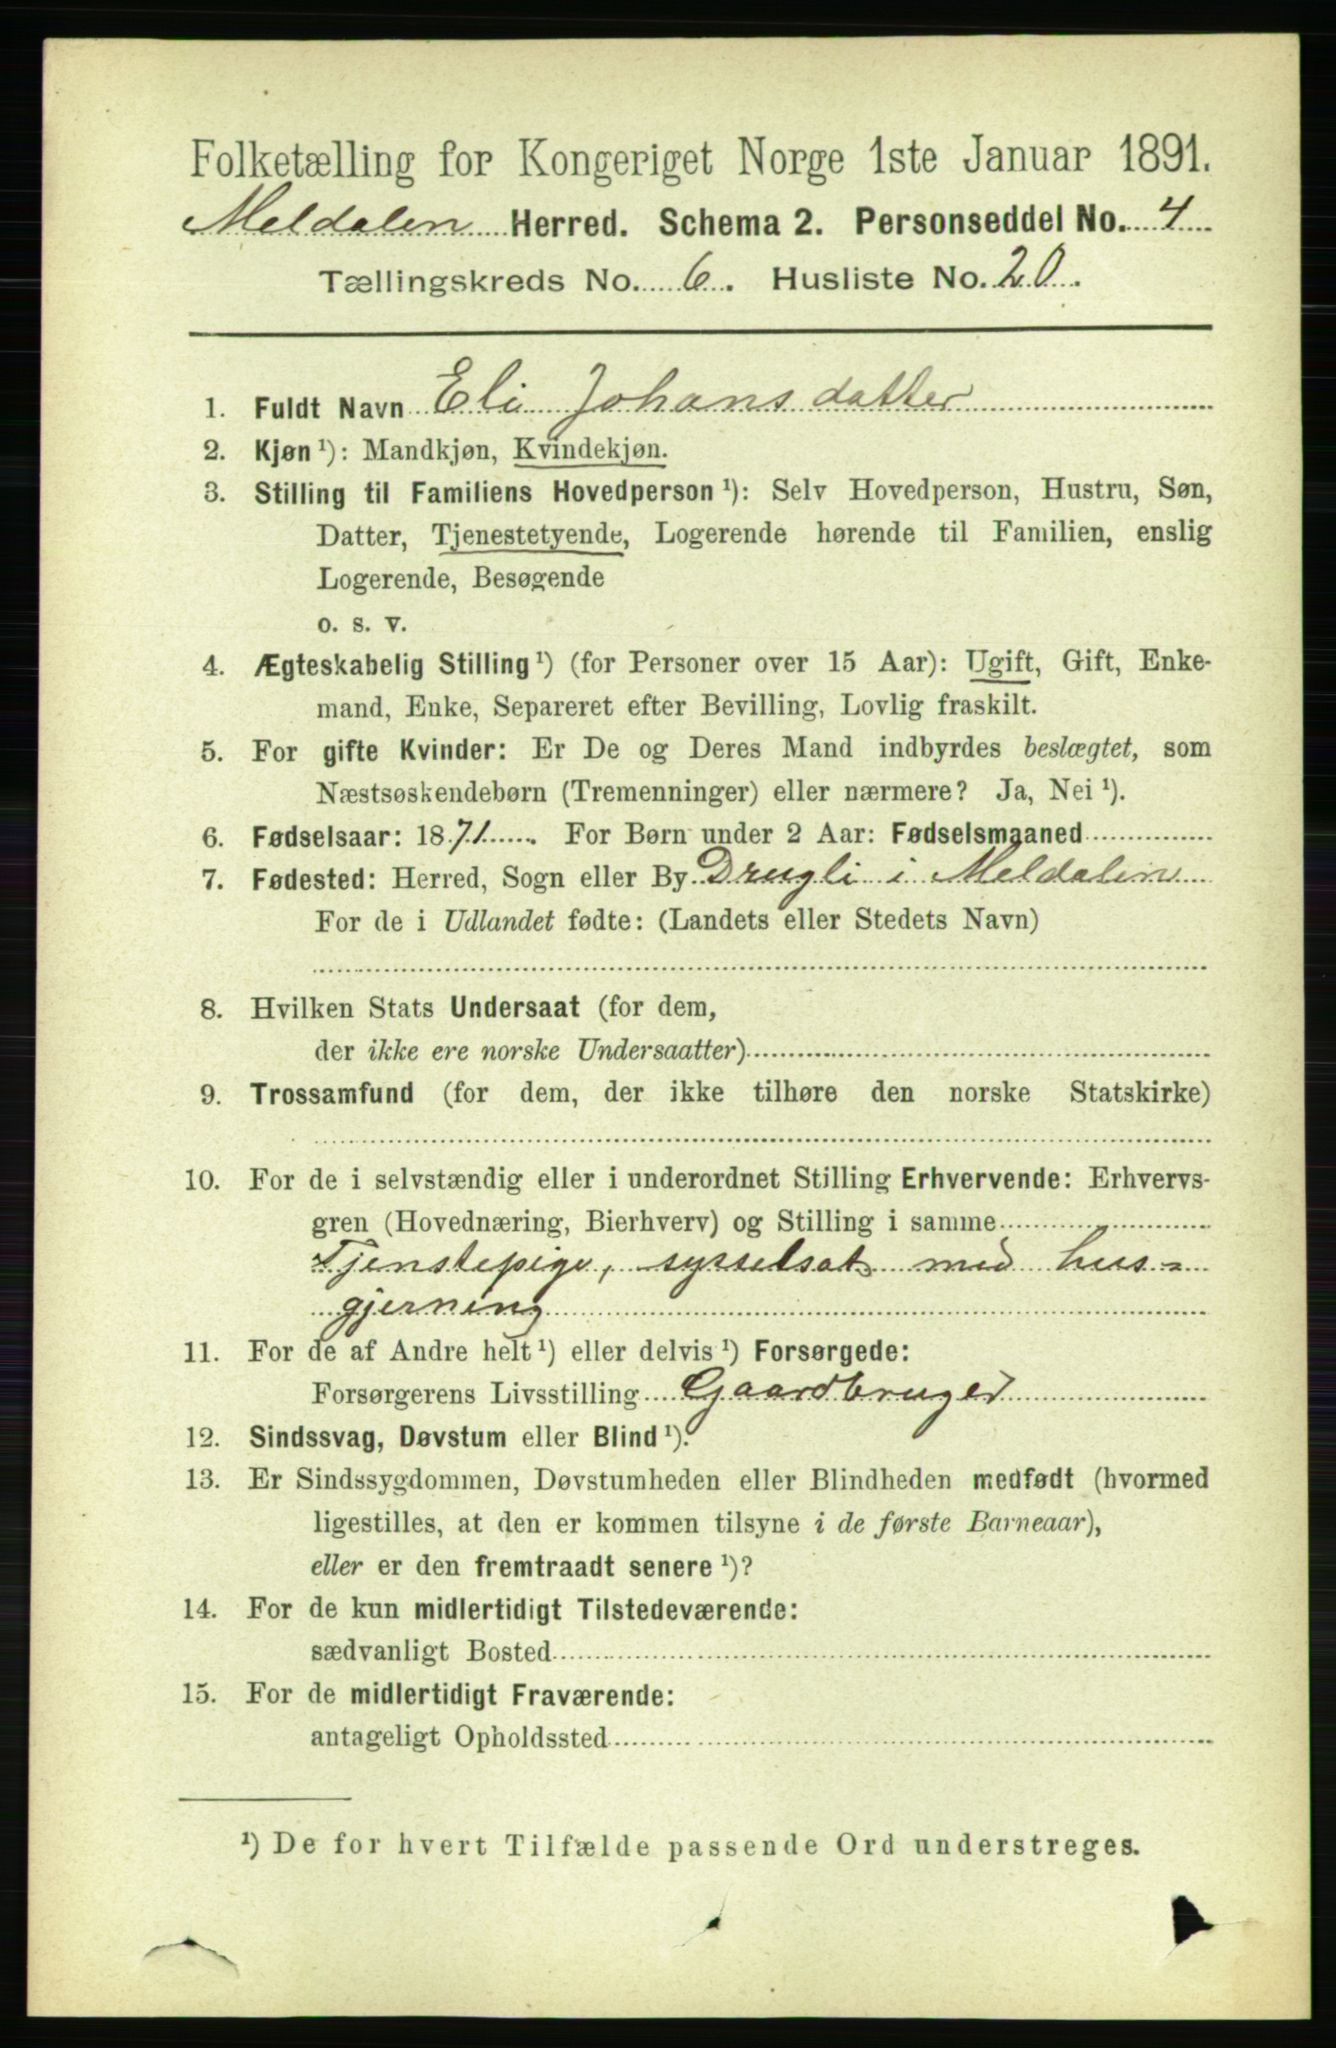 Folketælling for Kongeriget Norge 1ste Januar 1891.
Meldalen Herred. Schema 2. Personseddel No. 4
Tællingskreds No. 6. Husliste No. 20.
1. Fuldt Navn Eli Johansdatter
2. Kjøn ¹): Mandkjøn, Kvindekjøn.
3. Stilling til Familiens Hovedperson ¹): Selv Hovedperson, Hustru, Søn,
Datter, Tjenestetyende, Logerende hørende til Familien, enslig
Logerende, Besøgende
o. s. v.
4. Ægteskabelig Stilling ¹) (for Personer over 15 Aar): Ugift, Gift, Enke-
mand, Enke, Separeret efter Bevilling, Lovlig fraskilt.
5. For gifte Kvinder: Er De og Deres Mand indbyrdes beslægtet, som
Næstsøskendebørn (Tremenninger) eller nærmere? Ja, Nei ¹).
6. Fødselsaar: 1871. For Børn under 2 Aar: Fødselsmaaned
7. Fødested: Herred, Sogn eller By Drugli i Meldalen
For de i Udlandet fødte: (Landets eller Stedets Navn)
8. Hvilken Stats Undersaat (for dem,
der ikke ere norske Undersaatter)
9. Trossamfund (for dem, der ikke tilhøre den norske Statskirke)
10. For de i selvstændig eller i underordnet Stilling Erhvervende: Erhvervs-
gren (Hovednæring, Bierhverv) og Stilling i samme
Tjenstepige, sysselsat med hus-
gjerning
11. For de af Andre helt ¹) eller delvis ¹) Forsørgede:
Forsørgerens Livsstilling Gaardbruger
12. Sindssvag, Døvstum eller Blind ¹).
13. Er Sindssygdommen, Døvstumheden eller Blindheden medfødt (hvormed
ligestilles, at den er kommen tilsyne i de første Barneaar),
eller er den fremtraadt senere ¹)?
14. For de kun midlertidigt Tilstedeværende:
sædvanligt Bosted
15. For de midlertidigt Fraværende:
antageligt Opholdssted
¹) De for hvert Tilfælde passende Ord understreges.